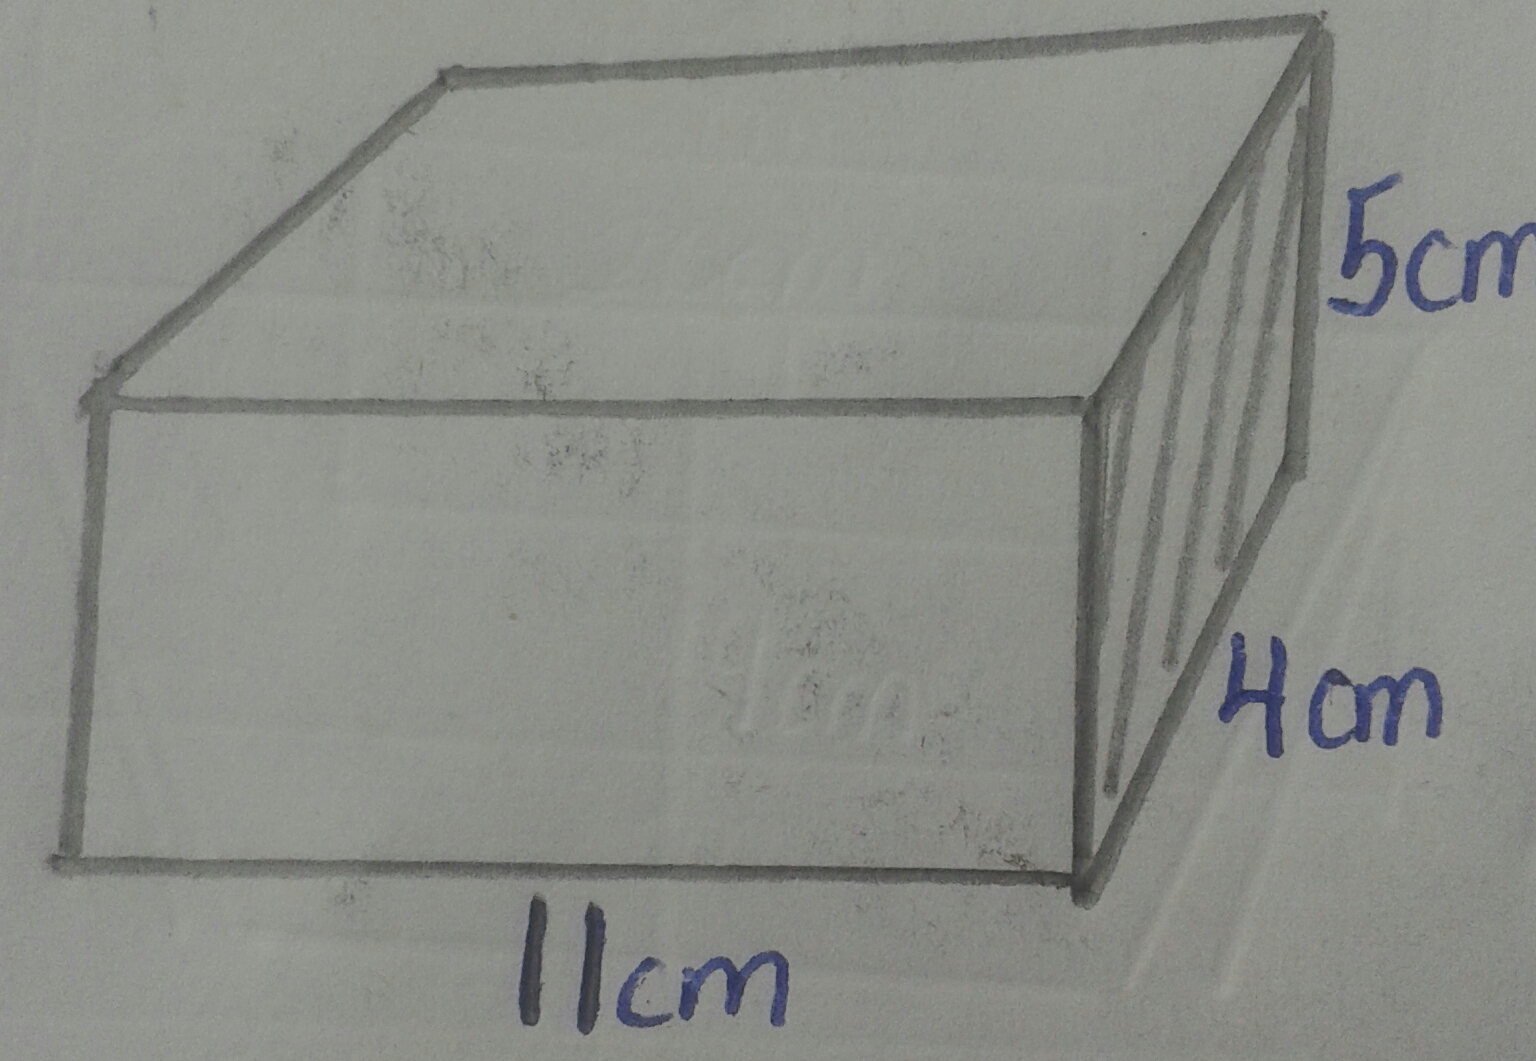 5cm
4cm
11cm